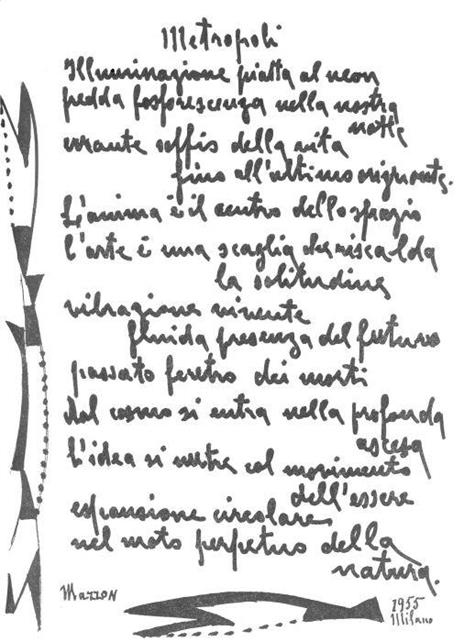 Metropoli
Illuminazione piatta al neon
fredda fosforescenza nella nostra
notte
errante soffio della vita
fino all'ultimo orizzonte.
L'anima è il centro dello spazio
l'arte è una scaglia che riscalda
la solitudine
vibrazione vivente
fluida presenza del futuro
passato feretro dei morti
dal cosmo si entra nella profonda
ascesa
l'idea si nutre col movimento
dell'essere
espansione circolare
nel moto perpetuo della
natura.
MAZZON
1955
Milano